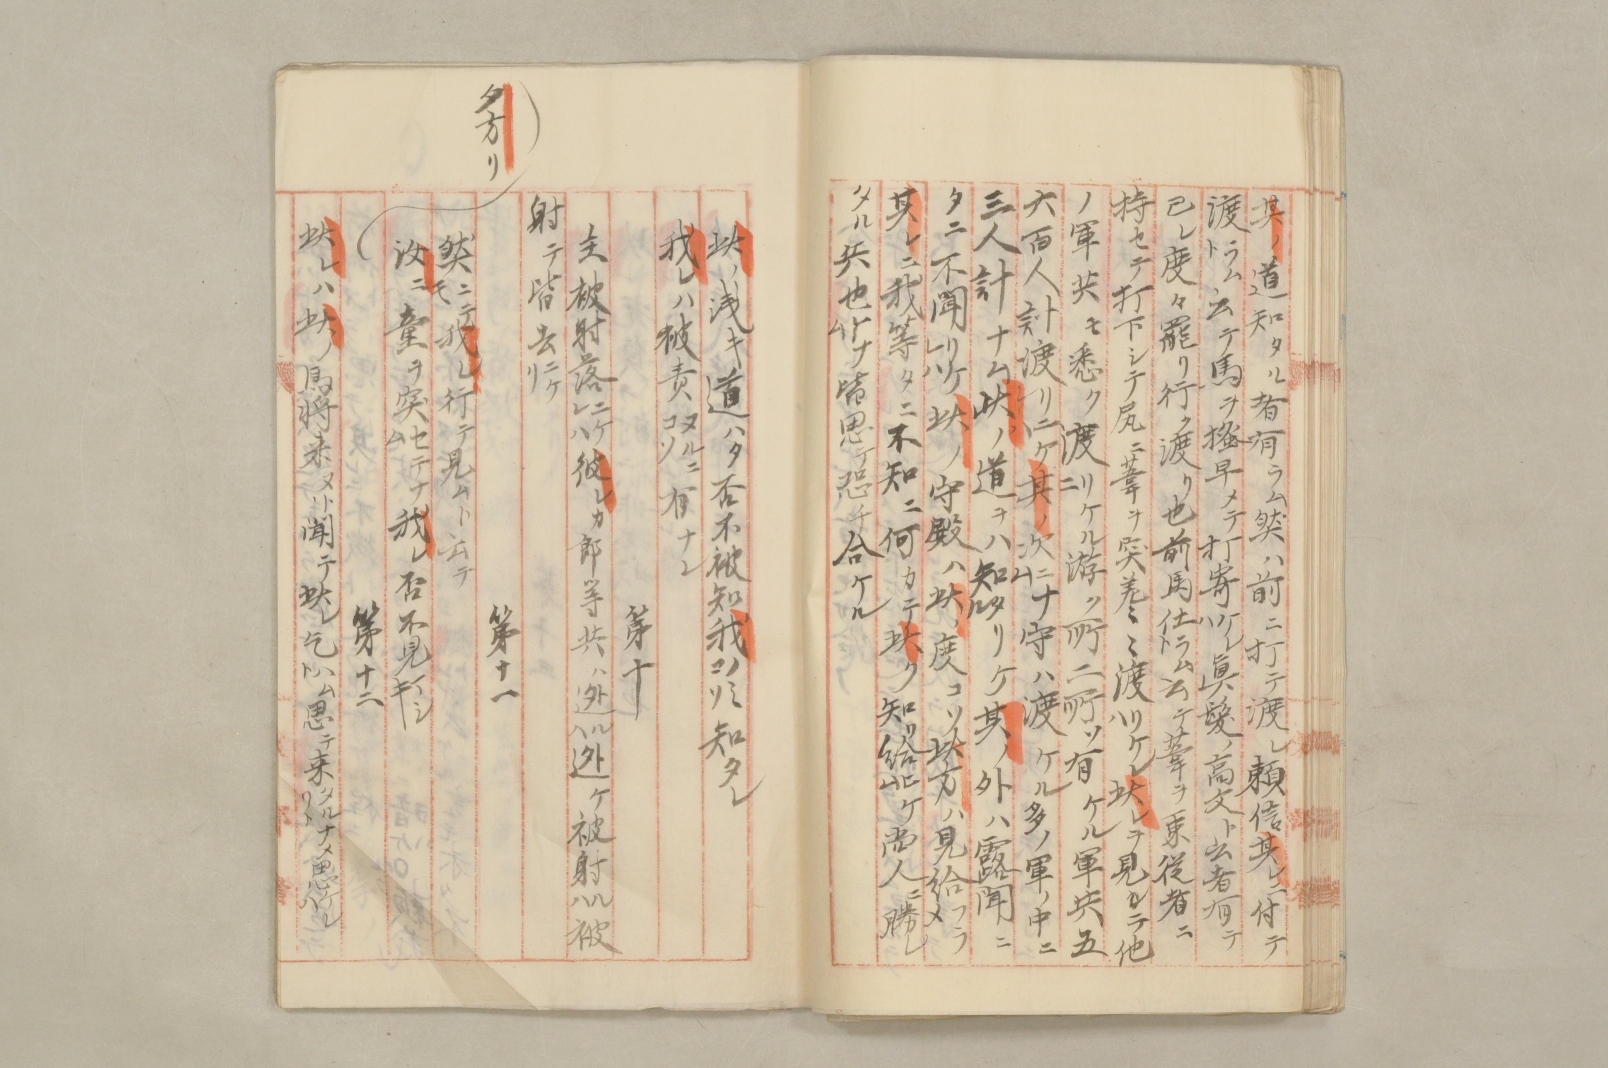 其ノ道知タル者有ラム然ハ前ニ打テ渡レ頼信其レニ付テ
渡ラムト云テ馬ヲ掻早メテ打寄ケレハ眞髪ノ高文ト云者有テ
己レ度々罷リ行ク渡リ也前馬仕ラムト云テ葦ヲ束従者ニ
持セテ打下シテ尻ニ葦ヲ突差ミミ渡リケレハ此レヲ見テ他
ノ軍共モ悉ク渡リニケル游ク所二所ソ有ケル軍共五
六百人計渡リニケレハ其ノ次ニナム守ハ渡ケル多ノ軍ノ中ニ
三人計ナム此ノ道ヲハ知タリケル其ノ外ハ露聞ニ
タニ不聞リケレハ此ノ守殿ハ此ノ度コソ此方ハ見給フラメ
其レニ我等タニ不知ニ何カテ此ク知リ給ケム尚人ニ勝レ
タル兵也ケナム皆思テ恐チ合ケル
此ノ浅キ道ハタ否不被知我レノミコソ知タレ
我レハ被責ヌルニコソ有ナレ
第十
主被射落ニケレハ彼レカ郎等共ハ迯ルハ迯ケ被射ルハ被
射テ皆去ニケリ
第十一
夕方リ
然ニテモ我レ行テ見ムト云テ
汝ニ童ヲ突セテナム我レ否不見マシキ
第十二
此レハ此ノ馬将来ヌト聞テ此レ乞ハムト思テ来タルナメリト思ケレハ